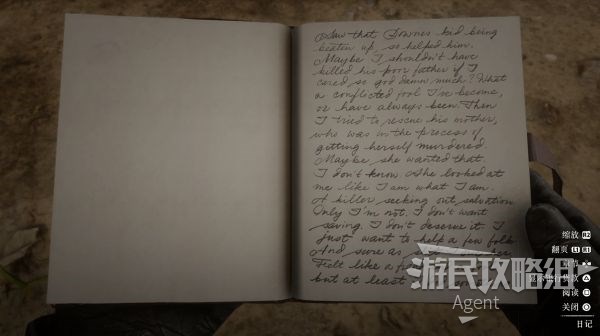 Saw that Downes kid being
beaten up, so helped him.
Maybe I shouldn't have
killed his poor father if I
cared so god damn much? What
a conflicted fool I've become,
or have always been. Then
I tried to rescue his mother,
who was in the process of
getting herself murdered.
Maybe, she wanted that.
I don't know. She looked at
me like I am what I am.
A killer, seeking out salvation.
Only I'm not. I don't want
saving. I don't deserve it. I
just want to help a few folk.
And sure as
Felt like a
but at least
游民攻略组
Agent
缩放 R2
翻页 L1 R1
阅读
关闭
日记